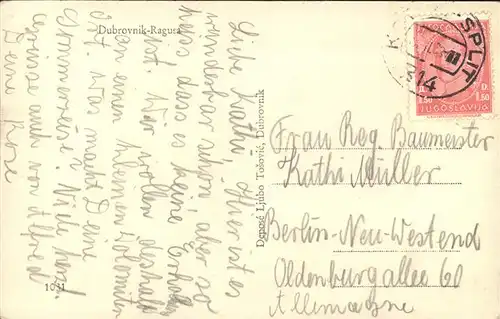 Dubrovnik-Ragusa
Liebe Kathi, Hier ist es
wunderbar schön aber so
heiss dass es keine Erholung
ist. Wir wollen deshalb
an einen kleinen Dolomiten
Ort. Was macht Deine
Sommerreise? Viele herzl.
Grüsse auch von Alfred
Deine Rose
1031
Deposé Ljubo Tošović, Dubrovnik
SPLIT
JUGOSLAVIJA
1.50 1.50
Frau Reg. Baumeister
Kathi Müller
Berlin-Neu-Westend
Oldenburgallee 60
Allemagne